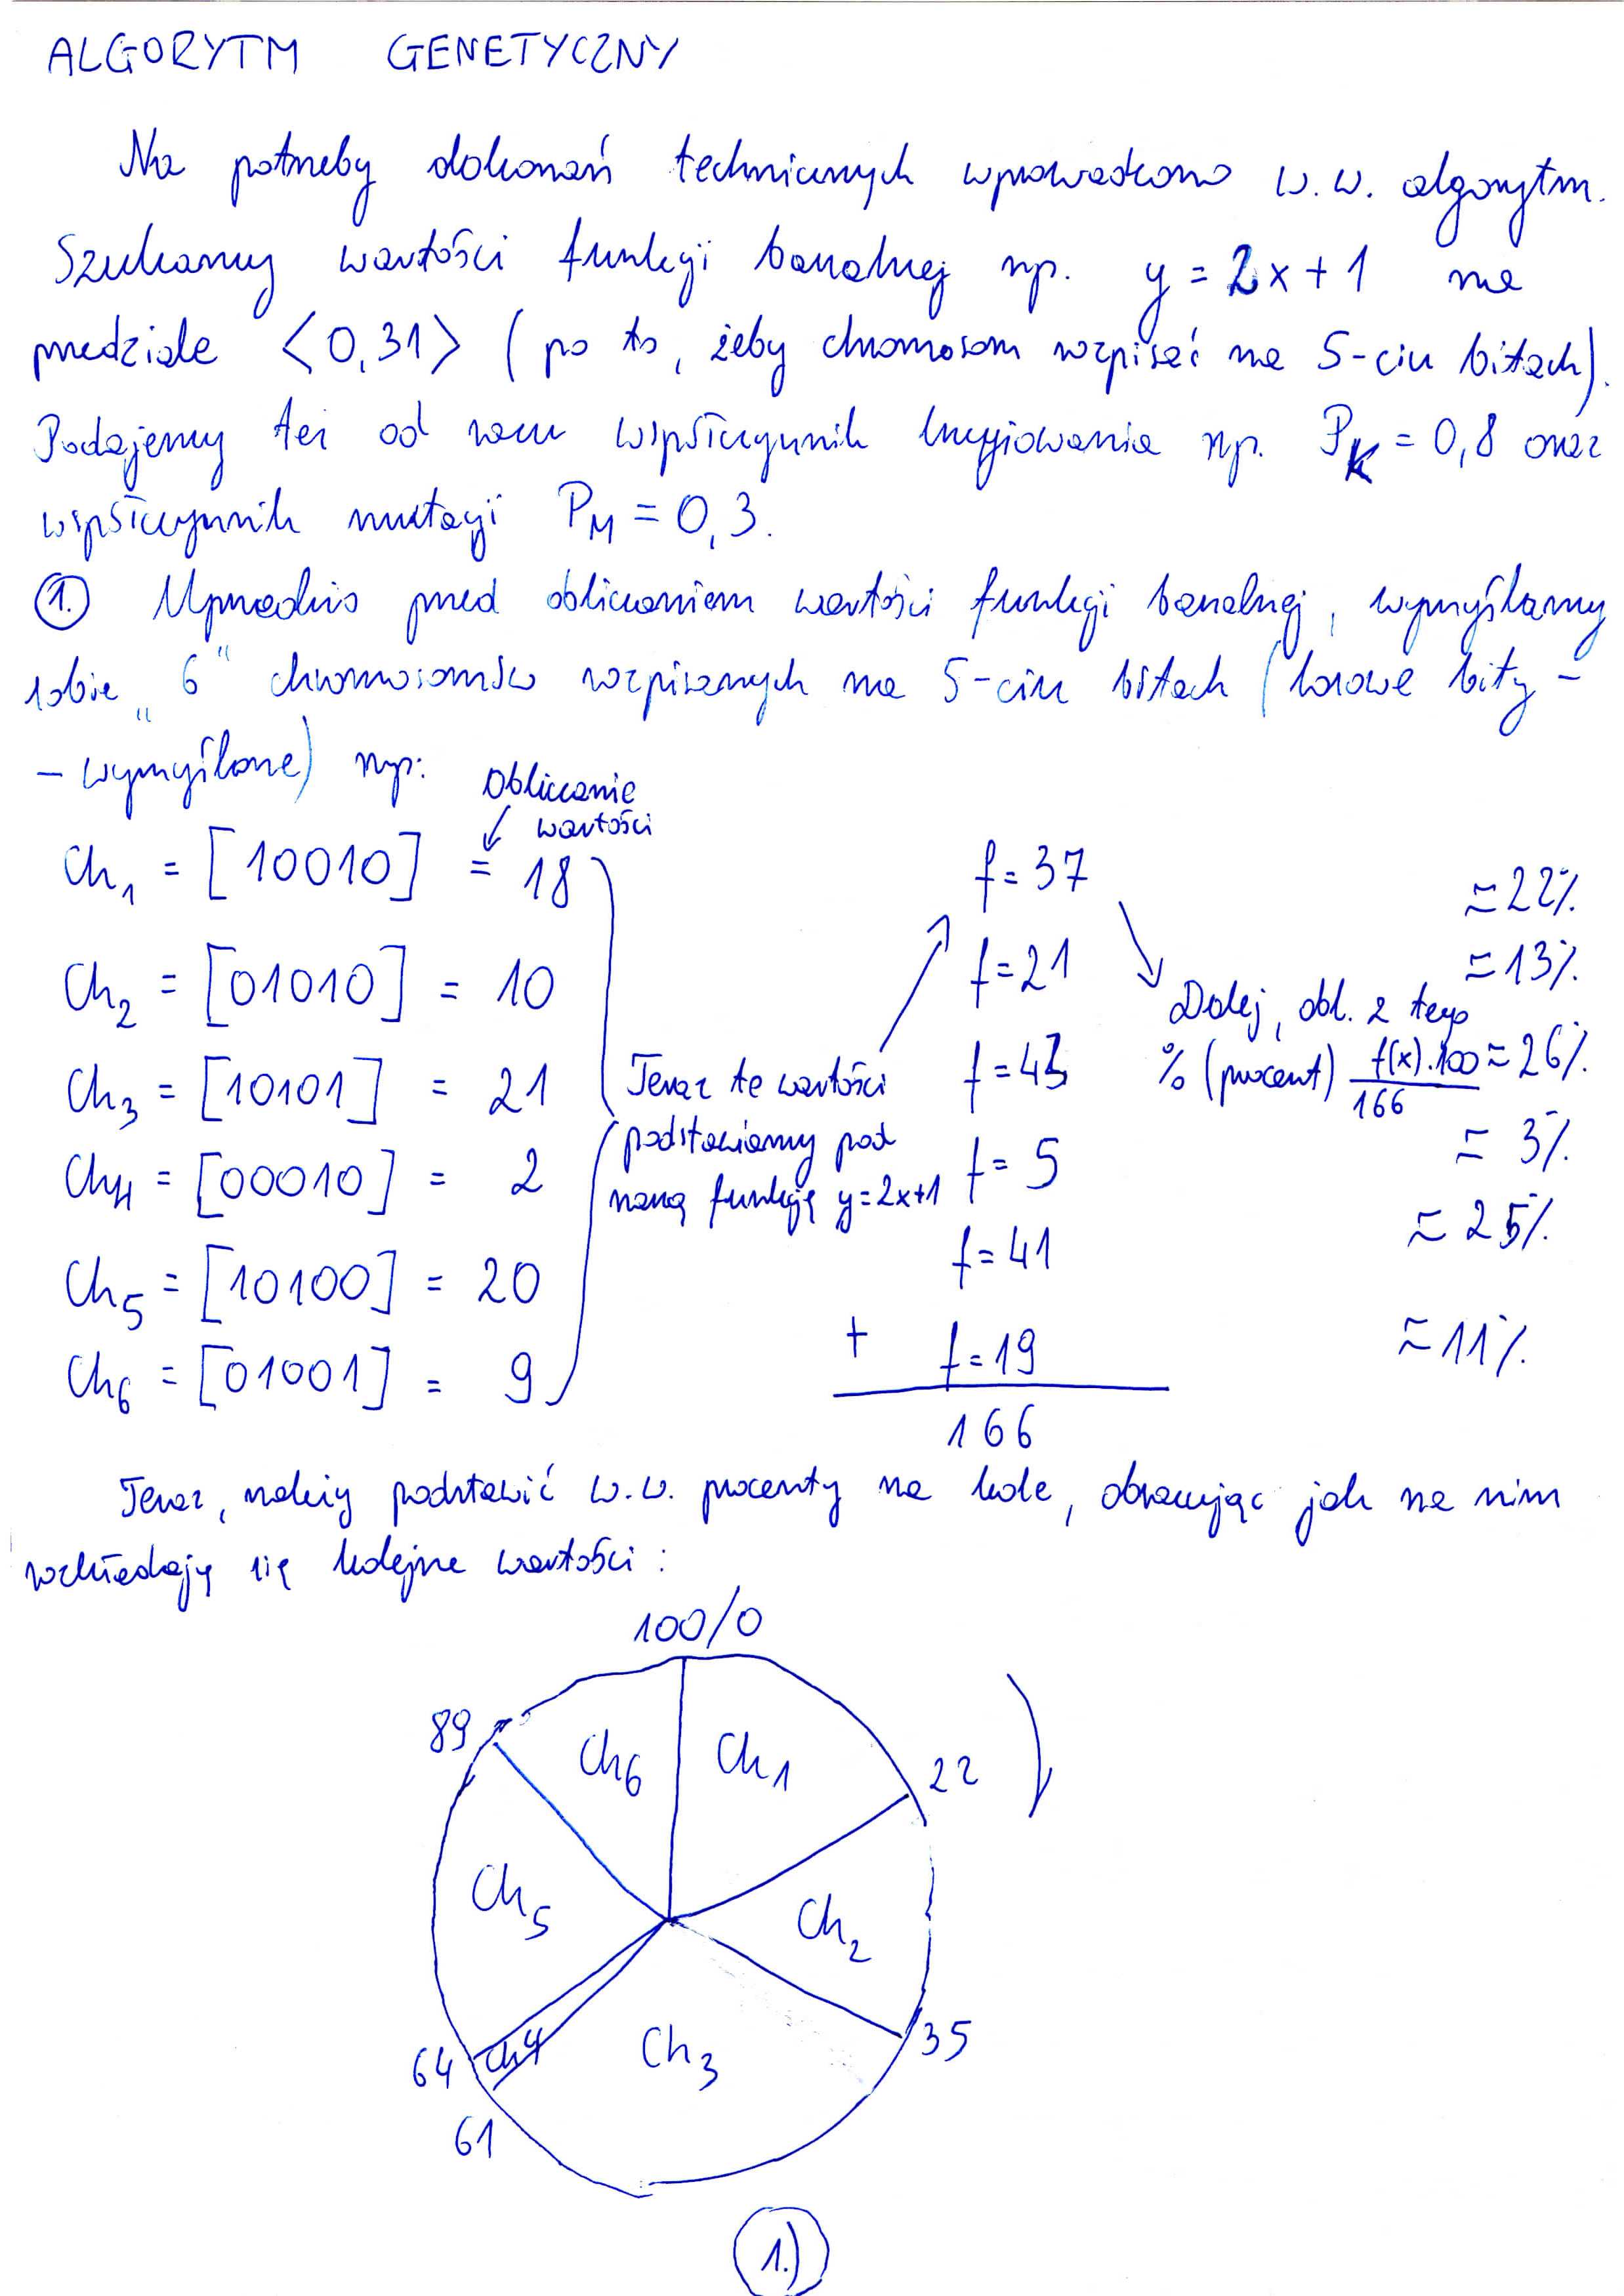 ALGORYTM GENETYCZNY
Na potrzeby dokonań technicznych wprowadzono w.w. algorytm.
Szukamy wartości funkcji banalnej np. y = 2x + 1 na
przedziale <0,31> (po to, żeby chromosom rozpisać na 5-ciu bitach).
Podajemy też od razu współczynnik krzyżowania np. PK = 0,8 oraz
współczynnik mutacji PM = 0,3.
1. Uprzednio przed obliczaniem wartości funkcji banalnej, wymyślamy
sobie „6" chromosomów rozpisanych na 5-ciu bitach (losowe bity -
- wymyślone) np:
Obliczanie
wartości
Ch1 = [10010] = 18
Ch2 = [01010] = 10
Ch3 = [10101] = 21
Ch4 = [00010] = 2
Ch5 = [10100] = 20
Ch6 = [01001] = 9
Teraz te wartości
podstawiamy pod
naszą funkcję y=2x+1
f = 37
f = 21
f = 43
f = 5
f = 41
+ f = 19
166
Dalej, obl. z tego
% (procent) f(x).100 / 166
≈ 22%
≈ 13%
≈ 26%
≈ 3%
≈ 25%
≈ 11%
Teraz, należy podstawić w.w. procenty na kole, obrazując jak na nim
rozkładają się kolejne wartości :
100/0
89
Ch6
Ch1
22
Ch5
Ch2
64
Ch4
Ch3
35
61
1.)